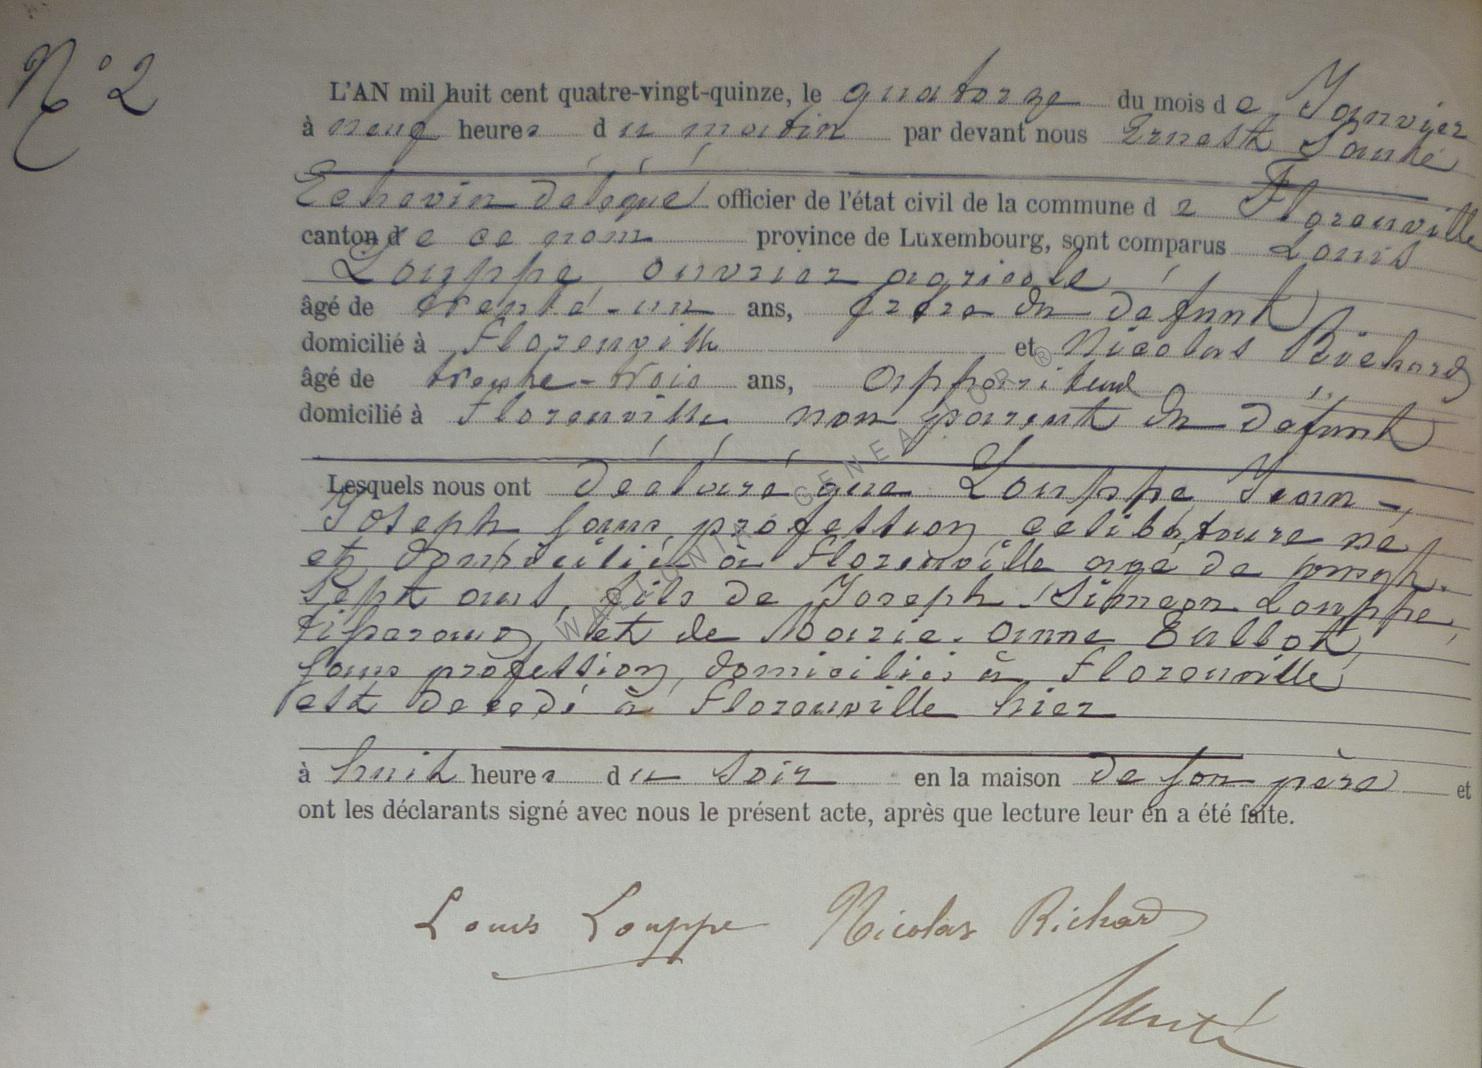 N° 2
L'AN mil huit cent quatre-vingt-quinze, le quatorze du mois de Janvier
à neuf heures du matin par devant nous Ernest Santé
Echevin délégué officier de l'état civil de la commune de Florenville
canton de ce nom province de Luxembourg, sont comparus Louis
Louppe, ouvrier agricole,
âgé de trente-un ans, frère du défunt
domicilié à Florenville et Nicolas Richard
âgé de trente-trois ans, appariteur
domicilié à Florenville non parent du défunt
Lesquels nous ont déclaré que Louppe Jean-
Joseph sans profession célibataire né
et domicilié à Florenville agé de
sept ans, fils de Joseph Siméon Louppe,
tisserand, et de Marie-Anne
sans profession, domiciliés à Florenville
est décédé à Florenville hier
à huit heures du soir en la maison de son père et
ont les déclarants signé avec nous le présent acte, après que lecture leur en a été faite.
WALLONIA GENEALOR ®
Louis Louppe Nicolas Richard
Santé